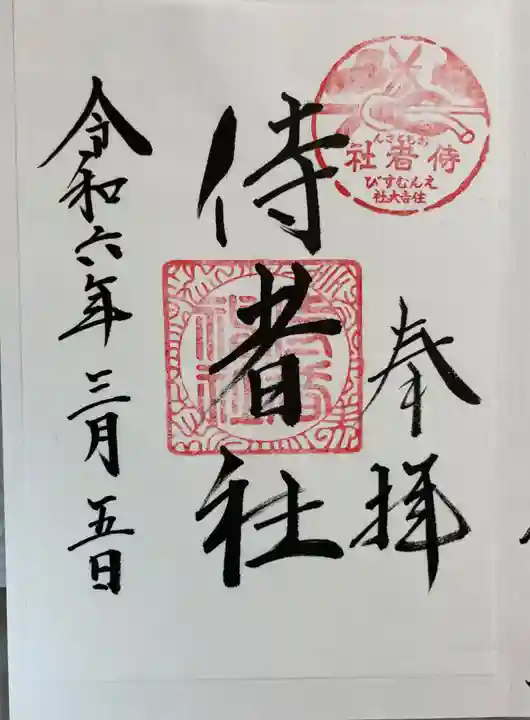 おもとさん
侍者社
えんむすび
住吉大社
奉拝
侍者社
令和六年三月五日